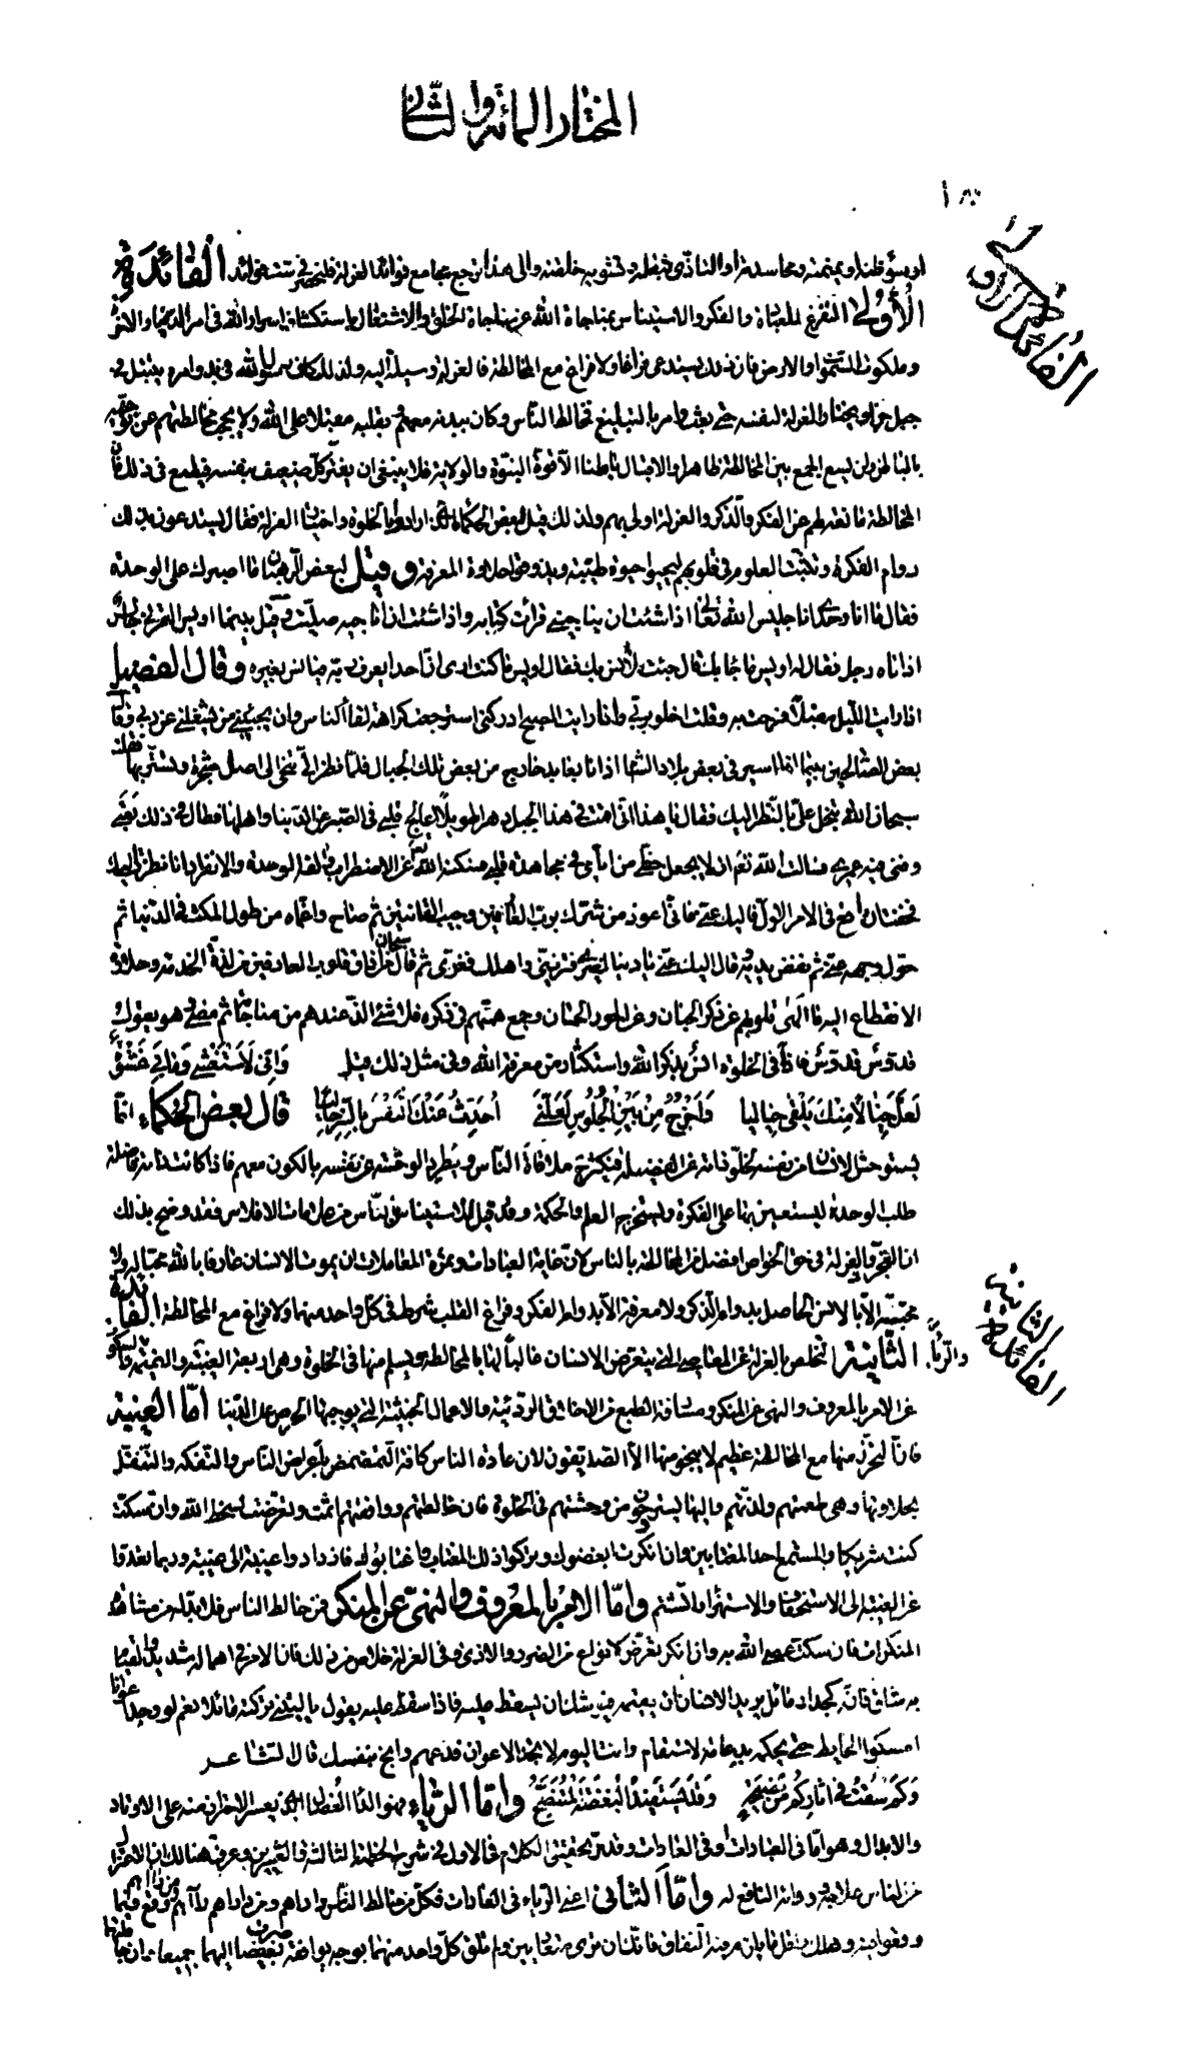 المختار المائة والثاني
الفائدة الاولى
او بسوء ظنه او بنميمته ومحاسدته او التأذي بثقله وتشويه خلقته والى هذا ترجع مجامع فوائد العزلة فلنحصر في ست فوائد الفائدة
الأولى التفرغ للعبادة والفكر والاستيناس بمناجاة الله عن مناجاة الخلق والاشتغال باستكشاف اسرار الله في امر الدنيا والاخرة
وملكوت السموات والارض فان ذلك يستدعي فراغا ولا فراغ مع المخالطة فالعزلة وسيلة اليه ولذلك كان رسول الله في بدو امره يتبتل في
جبل حراء ويختار العزلة لنفسه حتى بعث وامر بالتبليغ تخالط الناس وكان ببدنه معهم وبقلبه مقبلا على الله ولا يحجبه مخالطتهم عن توجهه
بالباطن ولن يسع الجمع بين المخالطة ظاهرا والاقبال باطنا الا قوة النبوة والولاية فلا ينبغي ان يغتر كل ضعيف بنفسه فيطمع في ذلك فان
المخالطة مانعة لهم عن الفكر والذكر والعزلة اولى بهم ولذلك قيل لبعض الحكماء ما الذي ارادوا بالخلوة واختيار العزلة فقال يستدعون بذلك
دوام الفكرة وتثبت العلوم في قلوبهم ليحيوا حيوة طيبة ويذوقوا حلاوة المعرفة وقيل لبعض الرهبان ما اصبرك على الوحدة
فقال ما انا وحدي انا جليس الله تعالى اذا شئت ان يناجيني قرأت كتابه واذا شئت ان اناجيه صليت وقيل بينما اويس القرني جالس
اذ اتاه رجل فقال له اويس ما جاء بك قال جئت لآنس بك فقال اويس ما كنت ارى ان احدا يعرف ربه فيأنس بغيره وقال الفضيل
اذا رايت الليل مقبلا فرحت به وقلت اخلو بربي واذا رايت الصبح ادركني استرجعت كراهة لقاء الناس وان يجيئني من يشغلني عن ربي وقال
بعض الصالحين بينما انا اسير في بعض بلاد الشام اذا انا بعابد خارج من بعض تلك الجبال فلما نظر الي تنحى الى اصل شجرة وتستر بها فقلت
سبحان الله تبخل علي بالنظر اليك فقال يا هذا اني اقمت في هذا الجبل دهرا طويلا اعالج قلبي في الصبر عن الدنيا واهلها فطال في ذلك تعبي
وفنى فيه عمري فسالت الله تعالى ان لا يجعل حظي من ايامي في مجاهدة قلبي فسكنه الله عن الاضطراب والفه الوحدة والانفراد فلما نظرت اليك
خفت ان اقع في الامر الاول فاليك عني فاني اعوذ من شرك برب العارفين وحبيب القانتين ثم صاح واغماه من طول المكث في الدنيا ثم
حول وجهه عني ثم نفض يديه وقال اليك عني يا دنيا لغيري فتزيني واهلك فغري ثم قال سبحان من اذاق قلوب العارفين من لذة الخدمة وحلاوة
الانقطاع اليه ما الهى قلوبهم عن ذكر الجنان وعن الحور الحسان وجمع همتهم في ذكره فلا شئ الذ عندهم من مناجاته ثم مضى وهو يقول
قدوس قدوس فاذا في الخلوة انس بذكر الله واستكثار من معرفة الله وفي مثل ذلك قيل وَاِنّي لَاَسْتَغْشِي وَمَا بِي غَشْوَةٌ
لَعَلَّ خَيَالًا مِنْكَ يَلْقَى خِيَالِيا وَاَخْرُجُ مِنْ بَيْنِ الْجُلُوسِ لَعَلَّنِي اُحَدِّثُ عَنْكَ النَّفْسَ بِالسِّرِّ خَالِيا قال بعض الحكماء انما
يستوحش الانسان من نفسه لخلو ذاته عن الفضيلة فيكثر ح ملاقاة الناس ويطرد الوحشة عن نفسه بالكون معهم فاذا كانت ذاته فاضلة
طلب الوحدة ليستعين بها على الفكرة ويستخرج العلم والحكمة وقد قيل الاستيناس بالناس من علامات الافلاس فقد وضح بذلك
ان التجرد والعزلة في حق الخواص افضل من المخالطة بالناس لان غاية العبادات وثمرة المعاملات ان يموت الانسان عارفا بالله محبا له ولا
محبة الا بالانس الحاصل بدوام الذكر ولا معرفة الا بدوام الفكر وفراغ القلب شرط في كل واحد منهما ولا فراغ مع المخالطة الفائدة
الفائدة الثانية
الثانية التخلص بالعزلة عن المعاصي التي يتعرض الانسان غالبا لها بالمخالطة ويسلم منها في الخلوة وهي اربعة الغيبة والنميمة والسكوت
والرياء
عن الامر بالمعروف والنهي عن المنكر ومسارقة الطبع من الاخلاق الردئية والاعمال الخبيثة التي يوجبها الحرص على الدنيا امّا الغيبة
فان التحرز منها مع المخالطة عظيم لا ينجو منها الا الصديقون لان عادة الناس كافة التمضمض باعراض الناس والتفكه والتنقل
بحلاوتها وهي طعمتهم ولذتهم واليها يستروحون من وحشتهم في الخلوة فان خالطتهم ووافقتهم اثمت وتعرضت لسخط الله وان سكتت
كنت شريكا والمستمع احد المغتابين وان انكرت ابغضوك وتركوا ذلك المغتاب واغتابوك فازدادوا غيبة الى غيبة وربما تعدوا
عن الغيبة الى الاستخفاف والاستهزاء والشتم وامّا الامر بالمعروف والنهي عن المنكر فمن خالط الناس فلا بد له من مشاهدة
المنكرات فان سكت عصى الله به وان انكر تعرض لانواع من الضرر والاذى وفي العزلة خلاص من ذلك فان الامر في اهماله شديد والقيام
به شاق فانه كجدار مائل يريد الانسان ان يقيمه فيوشك ان يسقط عليه فاذا سقط عليه يقول يا ليتني تركته مائلا نعم لو وجد اعوانا
امسكوا الحايط حتى يحكمه بدعامة لاستقام وانت اليوم لا تجد الاعوان فدعهم وانج بنفسك قال الشاعر
وَكَمْ سُقْتُ فِي اثَارِكُمْ مِنْ نَصِيحَةٍ وَقَدْ يَسْتَفِيدُ الْبَغْضَةَ الْمُتَنَصِّحُ وامّا الرياء فهو الداء العضال الذي يعسر الاحتراز منه على الاوتاد
والابدال وهو اما في العبادات او في العادات وقد مر تحقيق الكلام في الاول في شرح الخطبة الثالثة والعشرين وعرفت هنالك ان الاعتزال
عن الناس علاجه ودوائه النافع له وامّا الثاني اعني الرياء في العادات فكل من خالط الناس داراهم ومن داراهم راآهم ومن راآهم وقع فيما
وقعوا فيه وهلك واقل ما يلزم فيه النفاق فانك ان ترى متعاديين ولم تلق كل واحد منهما بوجه يوافقه صرت بغيضا اليهما جميعا وان جاملتهما